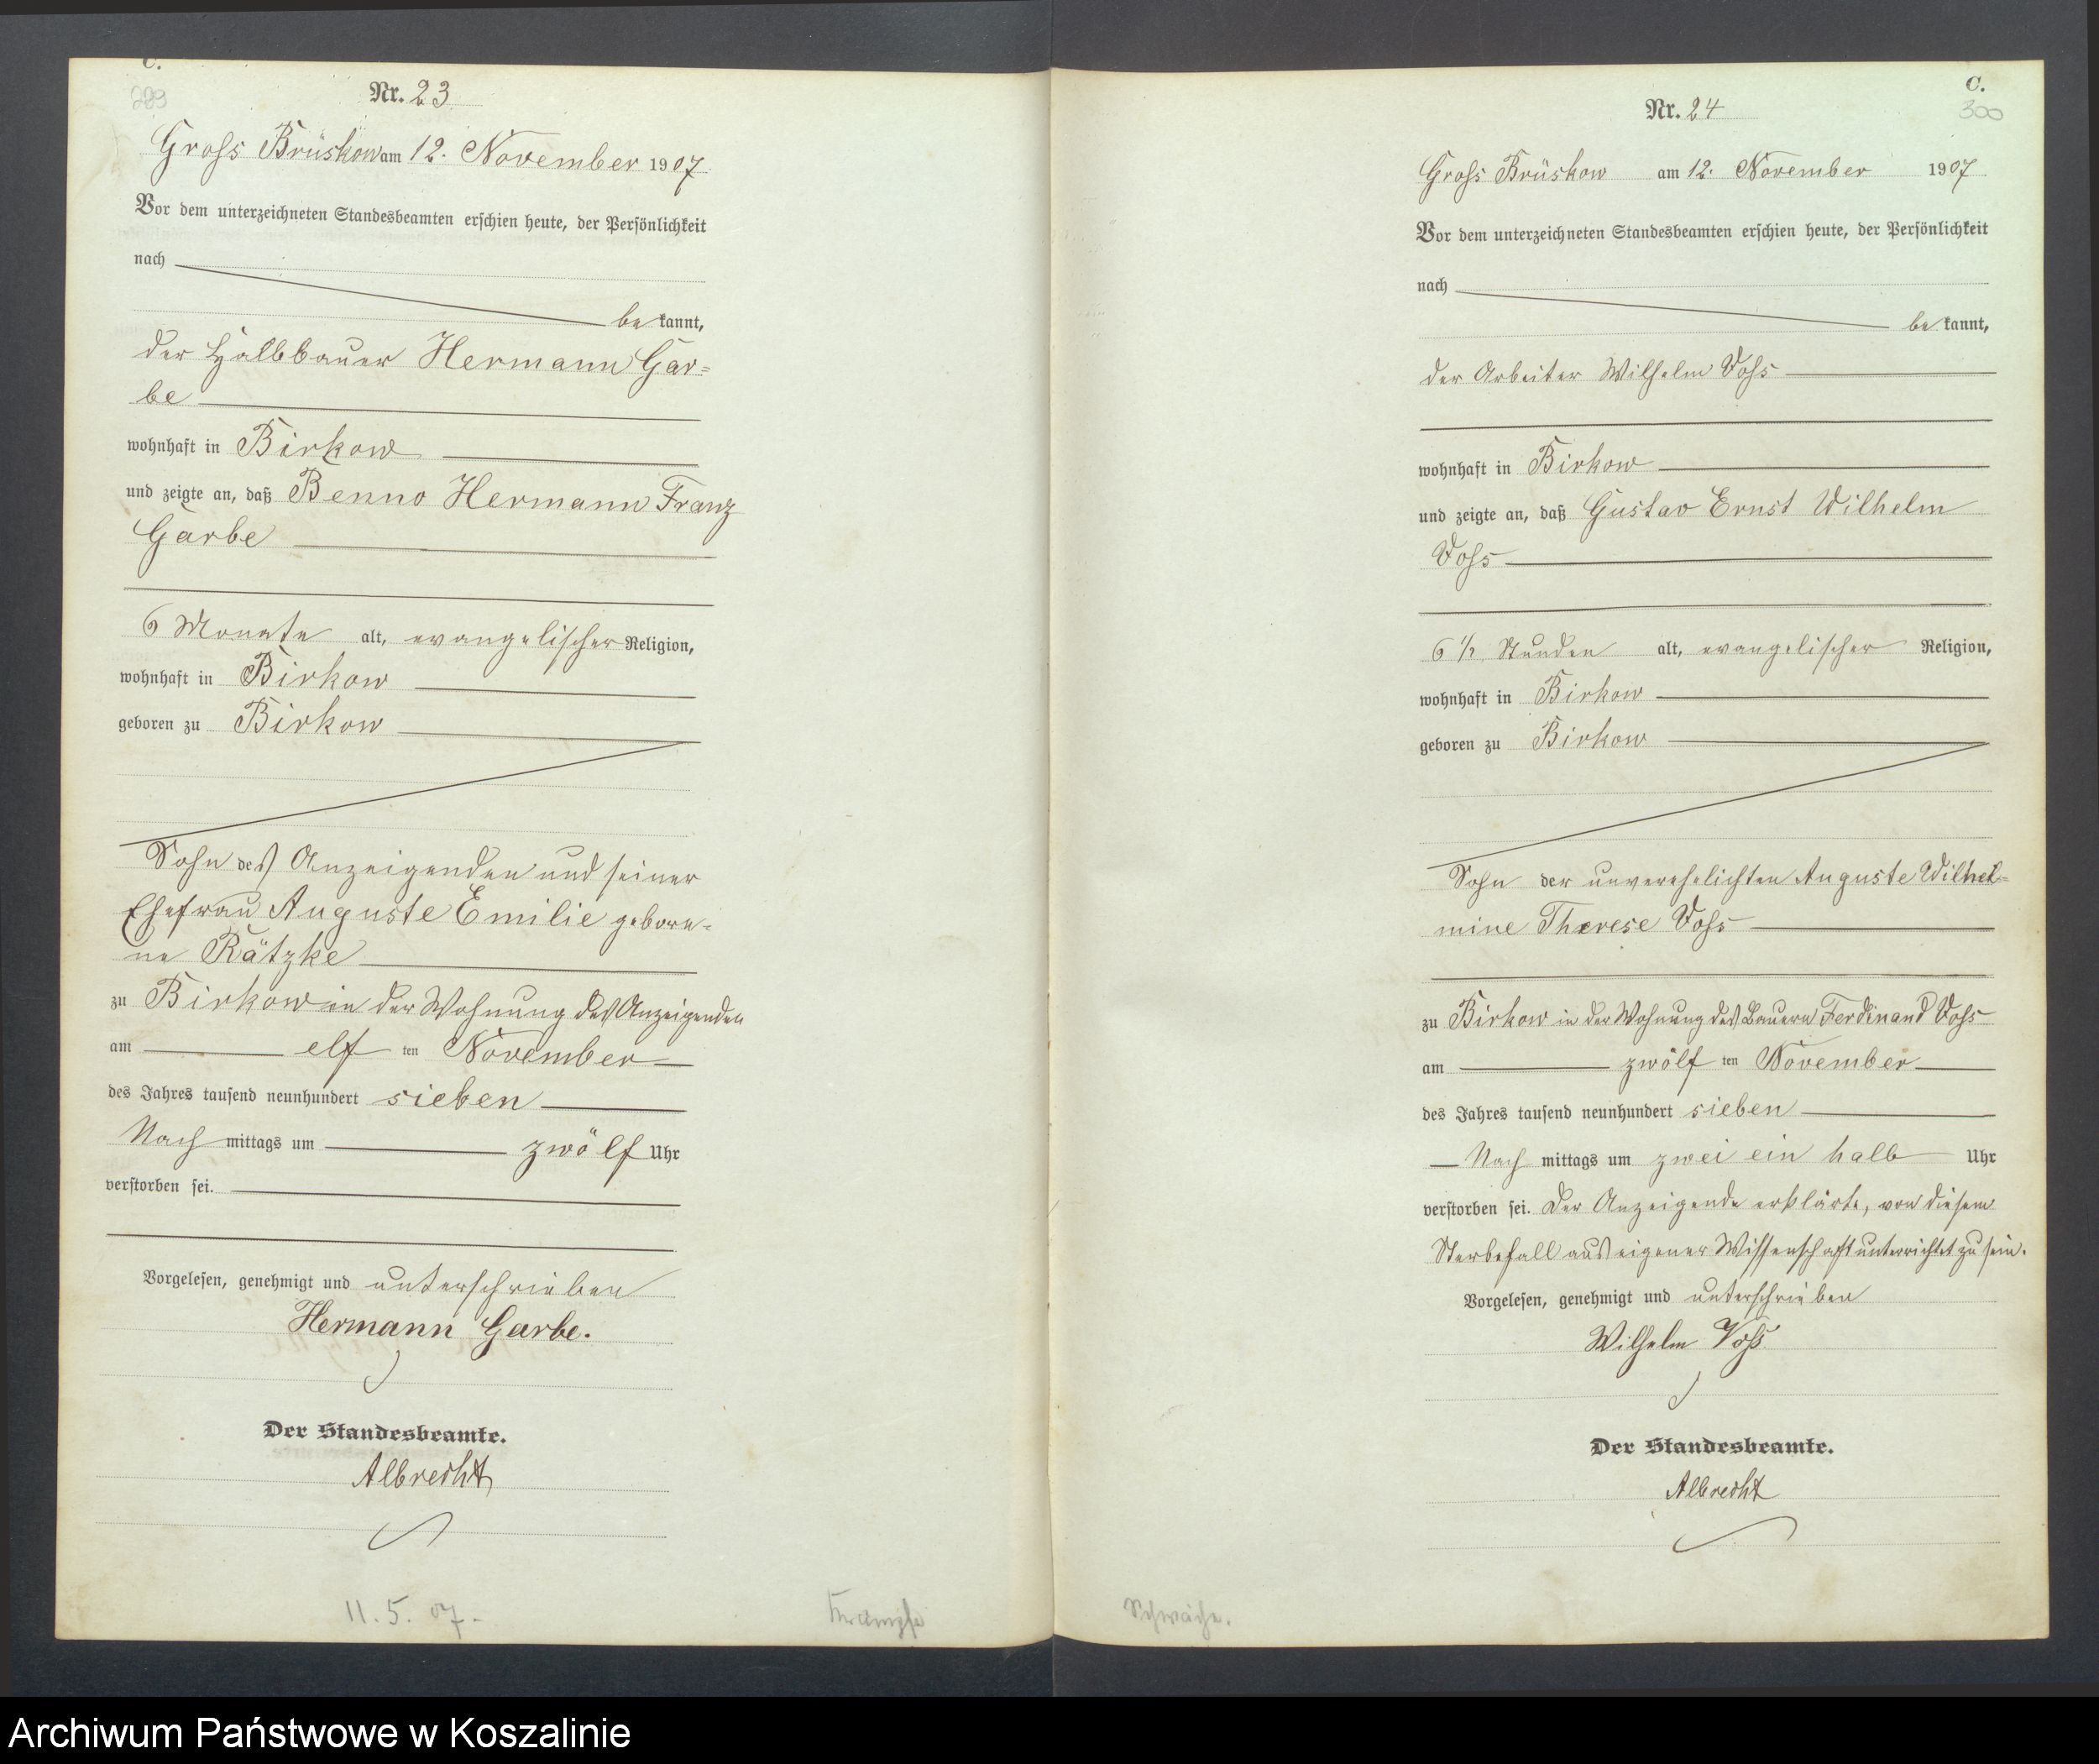 C.
Nr. 23
Gross Brüskow am 12. November 1907.
Vor dem unterzeichneten Standesbeamten erschien heute, der Persönlichkeit
nach
bekannt,
der Halbbauer Hermann Gar=
be
wohnhaft in Birkow
und zeigte an, daß Benno Hermann Franz
Garbe
6 Monate alt, evangelischer Religion,
wohnhaft in Birkow
geboren zu Birkow
Sohn des Anzeigenden und seiner
Ehefrau Auguste Emilie gebore=
ne Rätzke
zu Birkow in der Wohnung des Anzeigenden
am elf ten November
des Jahres tausend neunhundert sieben
Nach mittags um zwölf Uhr
verstorben sei.
Vorgelesen, genehmigt und unterschrieben
Hermann Garbe.
Der Standesbeamte.
Albrecht
11. 5. 07.
Krämpfe
C.
300
Nr. 24
Gross Brüskow am 12. November 1907
Vor dem unterzeichneten Standesbeamten erschien heute, der Persönlichkeit
nach
bekannt,
der Arbeiter Wilhelm Voss
wohnhaft in Birkow
und zeigte an, daß Gustav Ernst Wilhelm
Voss
6 1/2 Stunden alt, evangelischer Religion,
wohnhaft in Birkow
geboren zu Birkow
Sohn der unverehelichten Auguste Wilhel=
mine Therese Voss
zu Birkow in der Wohnung des Bauern Ferdinand Voss
am zwölf ten November
des Jahres tausend neunhundert sieben
Nach mittags um zwei ein halb Uhr
verstorben sei. Der Anzeigende erklärte, von diesem
Sterbefall aus eigener Wissenschaft unterrichtet zu sein.
Vorgelesen, genehmigt und unterschrieben
Wilhelm Voß
Der Standesbeamte.
Albrecht
Schwäche.
Archiwum Państwowe w Koszalinie